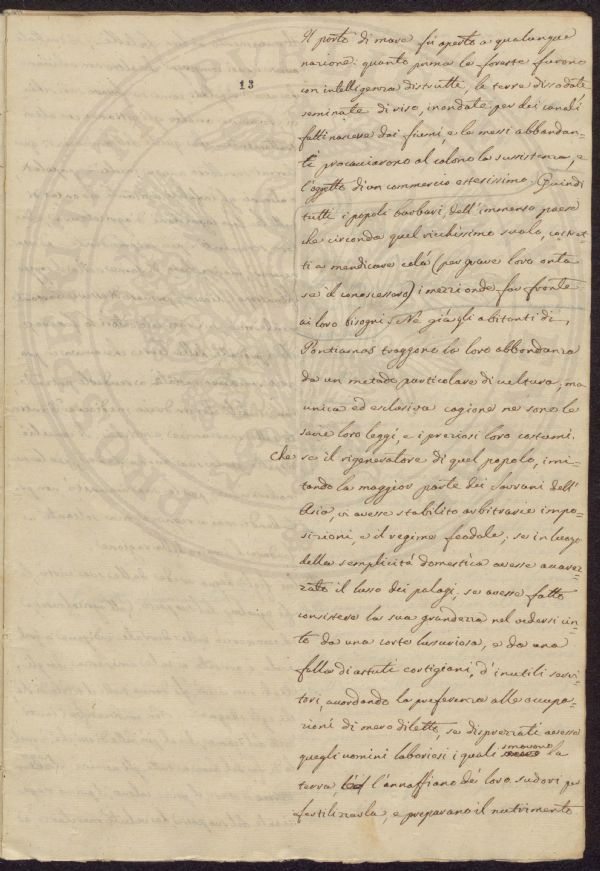 13
Il porto di mare fù aperto a qualunque
nazione: quanto prima le foreste furono
con intelligenza distrutte, le terre dissodate
seminate di riso, inondate per dei canali
fatti nascere dai fiumi, e le messi abbondan=
ti procacciarono al colono la sussistenza, e
l'oggetto di un commercio estesissimo. Quindi
tutti i popoli barbari, dell'immenso paese
che circonda quel ricchissimo suolo, costret=
ti a mendicare colà (per grave loro onta
se il conoscessero) i mezzi onde far fronte
ai loro bisogni. Né già gli abitanti di
Pontiamas traggono la loro abbondanza
da un metodo particolare di cultura, ma
unica ed esclusiva cagione ne sono le
savie loro leggi, e i preziosi loro costumi.
Che se il rigeneratore di quel popolo, imi=
tando la maggior parte dei sovrani dell'
Asia, vi avesse stabilito arbitrarie impo=
sizioni, e il regime feodale; se in luogo
della semplicità domestica avesse avvez=
zato il lusso dei palagi; se avesse fatto
consistere la sua grandezza nel vedersi cin=
to da una corte lussuriosa, e da una
folla di astuti cortigiani, d'inutili servi=
tori, accordando la preferenza alle occupa=
zioni di mero diletto, se disprezzati avesse
quegli uomini laboriosi i quali smovono la
terra l'annaffiano dei loro sudori per
fertilizzarla, e preparano il nutrimento